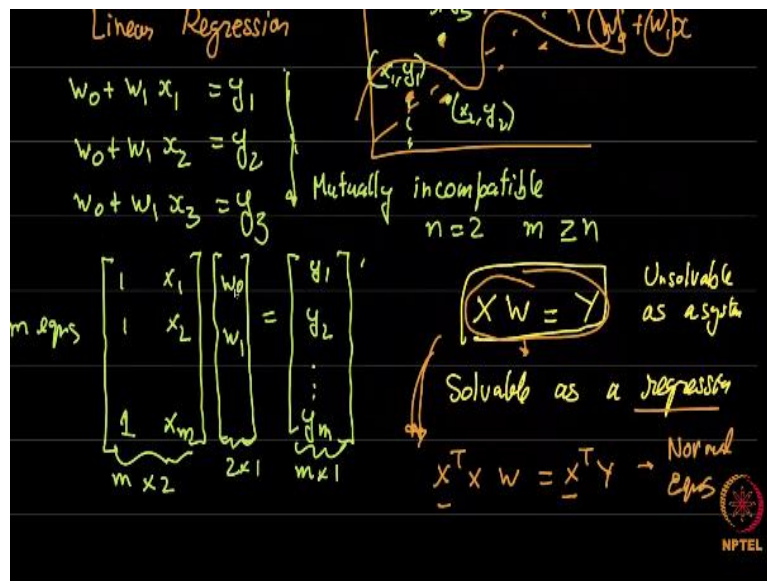 Linear Regression
w₀ + w₁ x₁ = y₁
w₀ + w₁ x₂ = y₂
w₀ + w₁ x₃ = y₃
(x₁, y₁)
(x₂, y₂)
+ w₁ x
Mutually incompatible
n = 2 m ≥ n
m eqns
1 x₁
1 x₂
1 xₘ
w₀
w₁
=
y₁
y₂
⋮
yₘ
m × 2
2 × 1
m × 1
X W = Y
Unsolvable
as a system
Solvable as a regression
Xᵀ X W = Xᵀ Y → Normal
Eqns
NPTEL